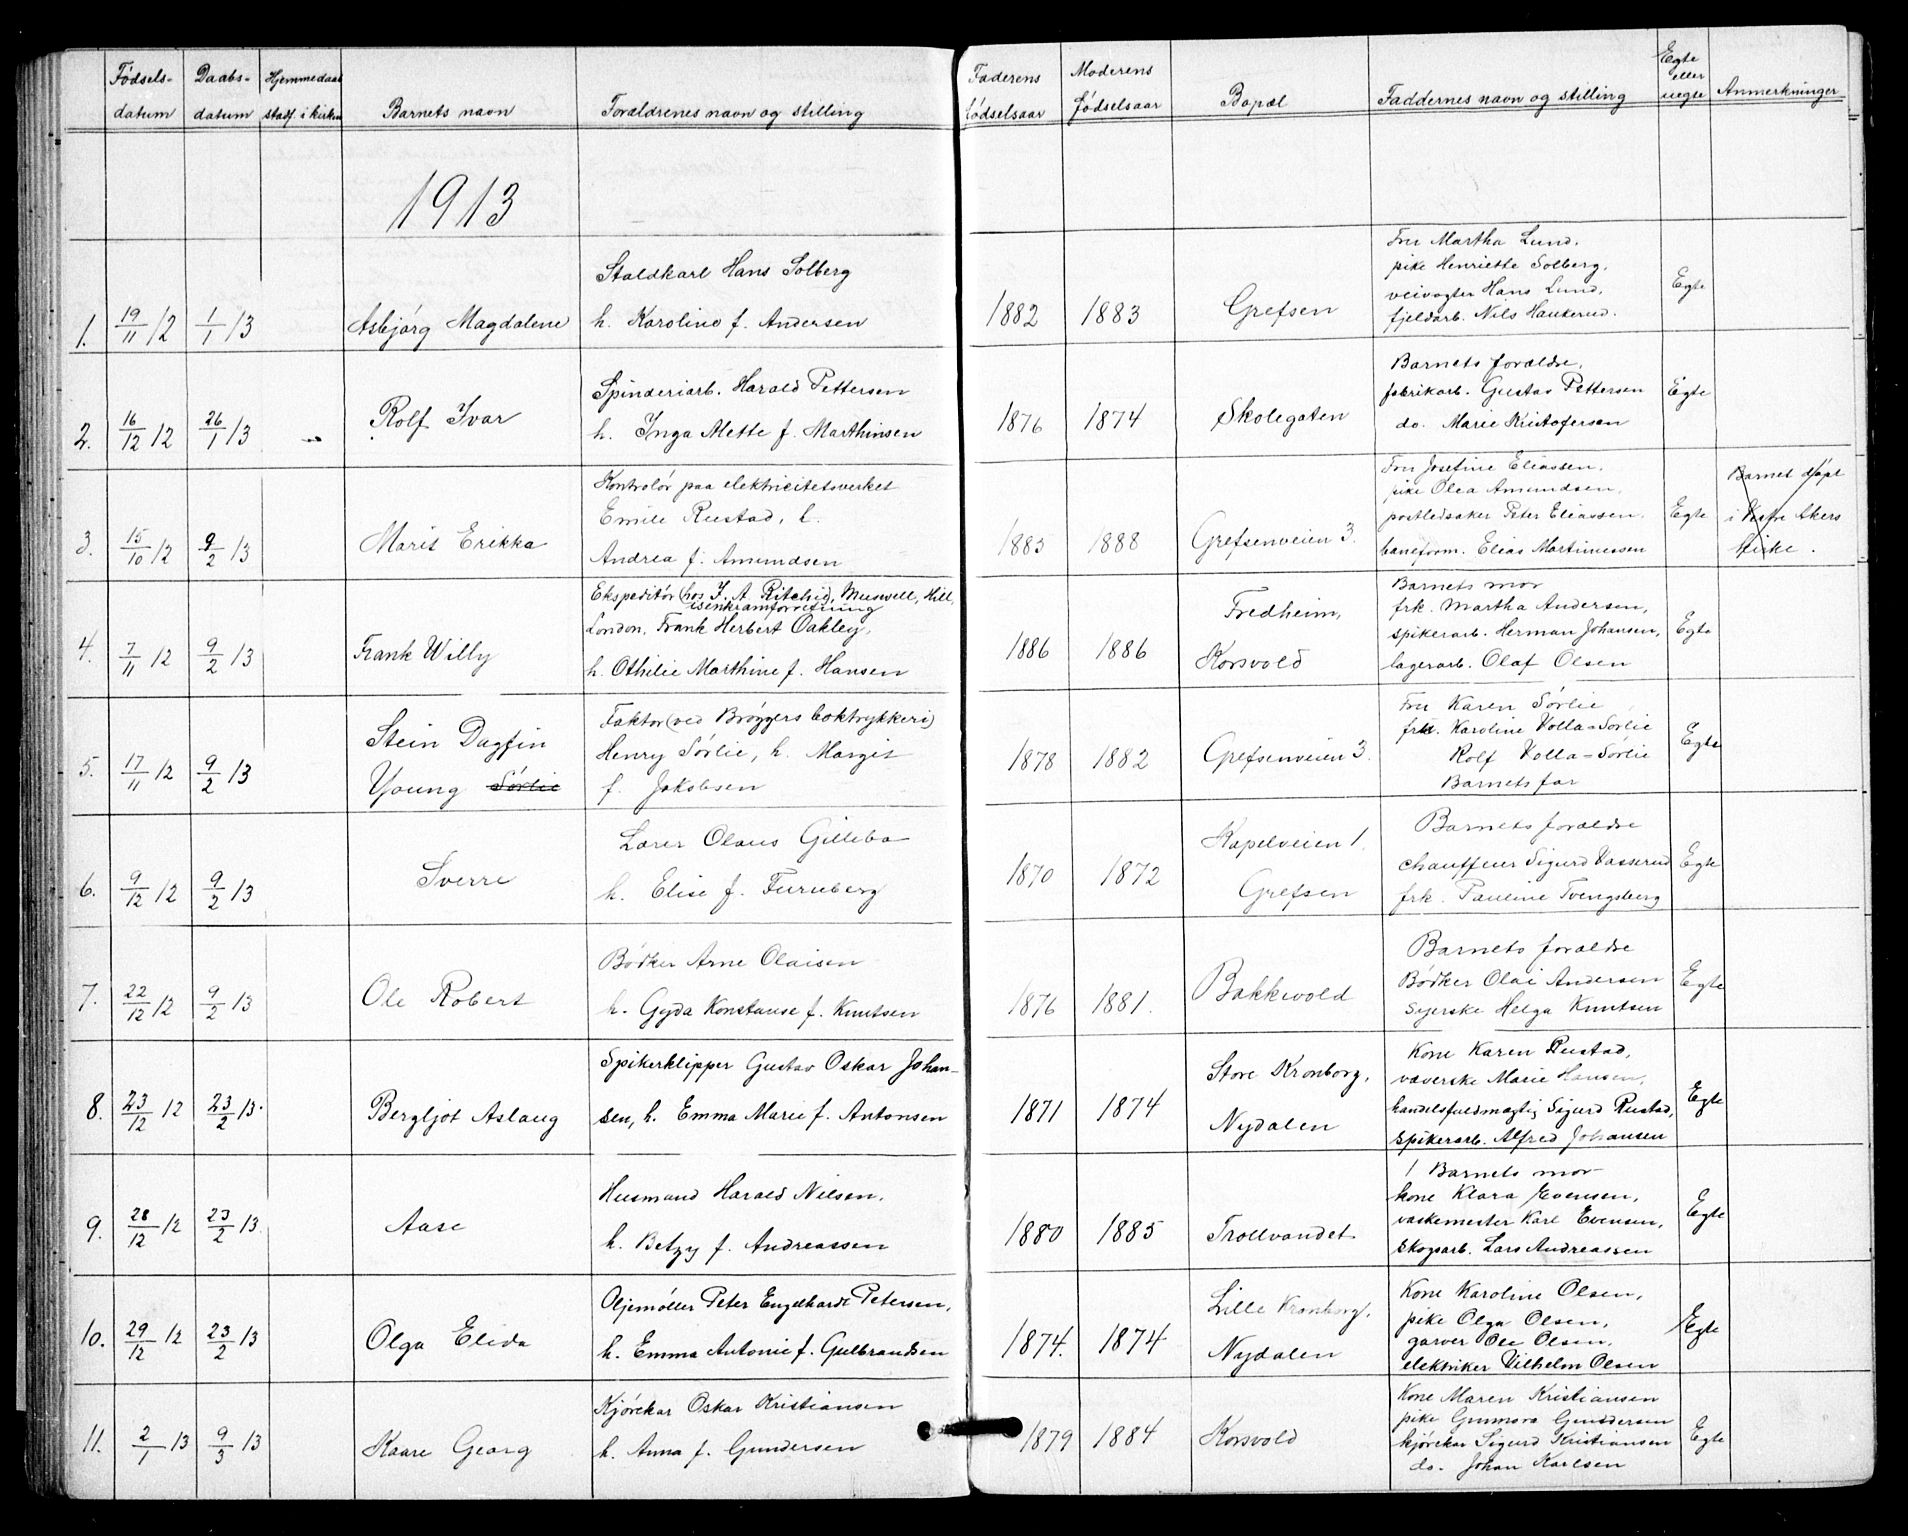 Fødsels-
datum
Daabs-
datum
Hjemmedaab
stadf. i kirken
Barnets navn
Forældrenes navn og stilling
Faderens
fødselsaar
Moderens
fødselsaar
Bopæl
Faddernes navn og stilling
Egte
eller
uegte
Anmerkninger
1913
1.
19/11 12
1/1 13
Asbjørg Magdalene
Staldkarl Hans Solberg
h. Karoline f. Andersen
1882
1883
Grefsen
Fru Martha Lund.
pike Henriette Solberg.
veivogter Hans Lund.
fjeldarb. Nils Haukerud.
Egte
2.
16/12 12
26/1 13
Rolf Ivar
Spinderiarb. Harald Pettersen
h. Inga Mette f. Marthinsen
1876
1874
Skolegaten
Barnets forældre.
fabrikarb. Gustav Pettersen
do. Marie Kristofersen
Egte
3.
15/10 12
9/2 13
Marit Erikka
Kontrolør paa elektricitetsverket
Emile Rustad, h.
Andrea f. Amundsen
1885
1888
Grefsenveien 3.
Fru Josefine Eliassen.
pike Olea Amundsen.
postledsaker Peter Eliassen.
baneform. Elias Martinussen
Egte
Barnet døpt
i Vestre Akers
kirke.
4.
7/11 12
9/2 13
Frank Willy
Ekspeditør (hos J. A. Ritchid, Muswell, Hill,
isenkramforretning
London, Frank Herbert Oakley,
h. Othilie Marthine f. Hansen
1886
1886
Fredheim,
Korsvold
Barnets mor
frk. Martha Andersen,
spikerarb. Herman Johansen,
lagerarb. Olaf Olsen
Egte
5.
17/11 12
9/2 13
Stein Dagfin
Young Sørlie
Faktor (ved Brøggers boktrykkeri)
Henry Sørlie, h. Margit
f. Jakobsen
1878
1882
Grefsenveien 3.
Fru Karen Sørlie
frk. Karoline Volla-Sørlie
Rolf Volla-Sørlie
Barnets far
Egte
6.
9/12 12
9/2 13
Sverre
Lærer Olaus Gillebo
h. Elise f. Furuberg
1870
1872
Kapelveien 1.
Grefsen
Barnets forældre
chauffeur Sigurd Vasserud
frk. Pauline Tvengsberg
Egte
7.
22/12 12
9/2 13
Ole Robert
Bødker Arne Olaisen
h. Gyda Konstanse f. Knutsen
1876
1881.
Bakkevold
Barnets forældre
Bødker Olai Andersen
Syerske Helga Knutsen
Egte
8.
23/12 12
23/2 13.
Bergljot Aslaug
Spikerklipper Gustav Oskar Johan-
sen, h. Emma Marie f. Antonsen
1871
1874
Store Kronborg,
Nydalen
Kone Karen Rustad,
væverske Marie Hansen,
handelsfuldmægtig Sigurd Rustad,
spikerarb. Alfred Johansen
Egte
9.
28/12 12
23/2 13.
Aase
Husmand Harald Nilsen.
h. Betzy f. Andreassen
1880
1885
Trollvandet
1 Barnets mor
kone Klara Evensen,
vaskemester Karl Evensen,
skogsarb. Lars Andreassen
Egte
10.
29/12 12
23/2 13
Olga Elida
Oljemøller Peter Engelhardt Petersen,
h. Emma Antonie f. Gulbrandsen
1874.
1874
Lille Kronborg,
Nydalen
Kone Karoline Olsen,
pike Olga Olsen,
garver Ole Olsen.
elektriker Vilhelm Olsen
Egte
11.
2/1 13
9/3 13
Kaare Georg
Kjørekar Oskar Kristiansen
h. Anna f. Gundersen
1879
1884
Korsvold
Kone Maren Kristiansen
pike Gunnora Gundersen
kjørekar Sigurd Kristiansen
do. Johan Karlsen
Egte